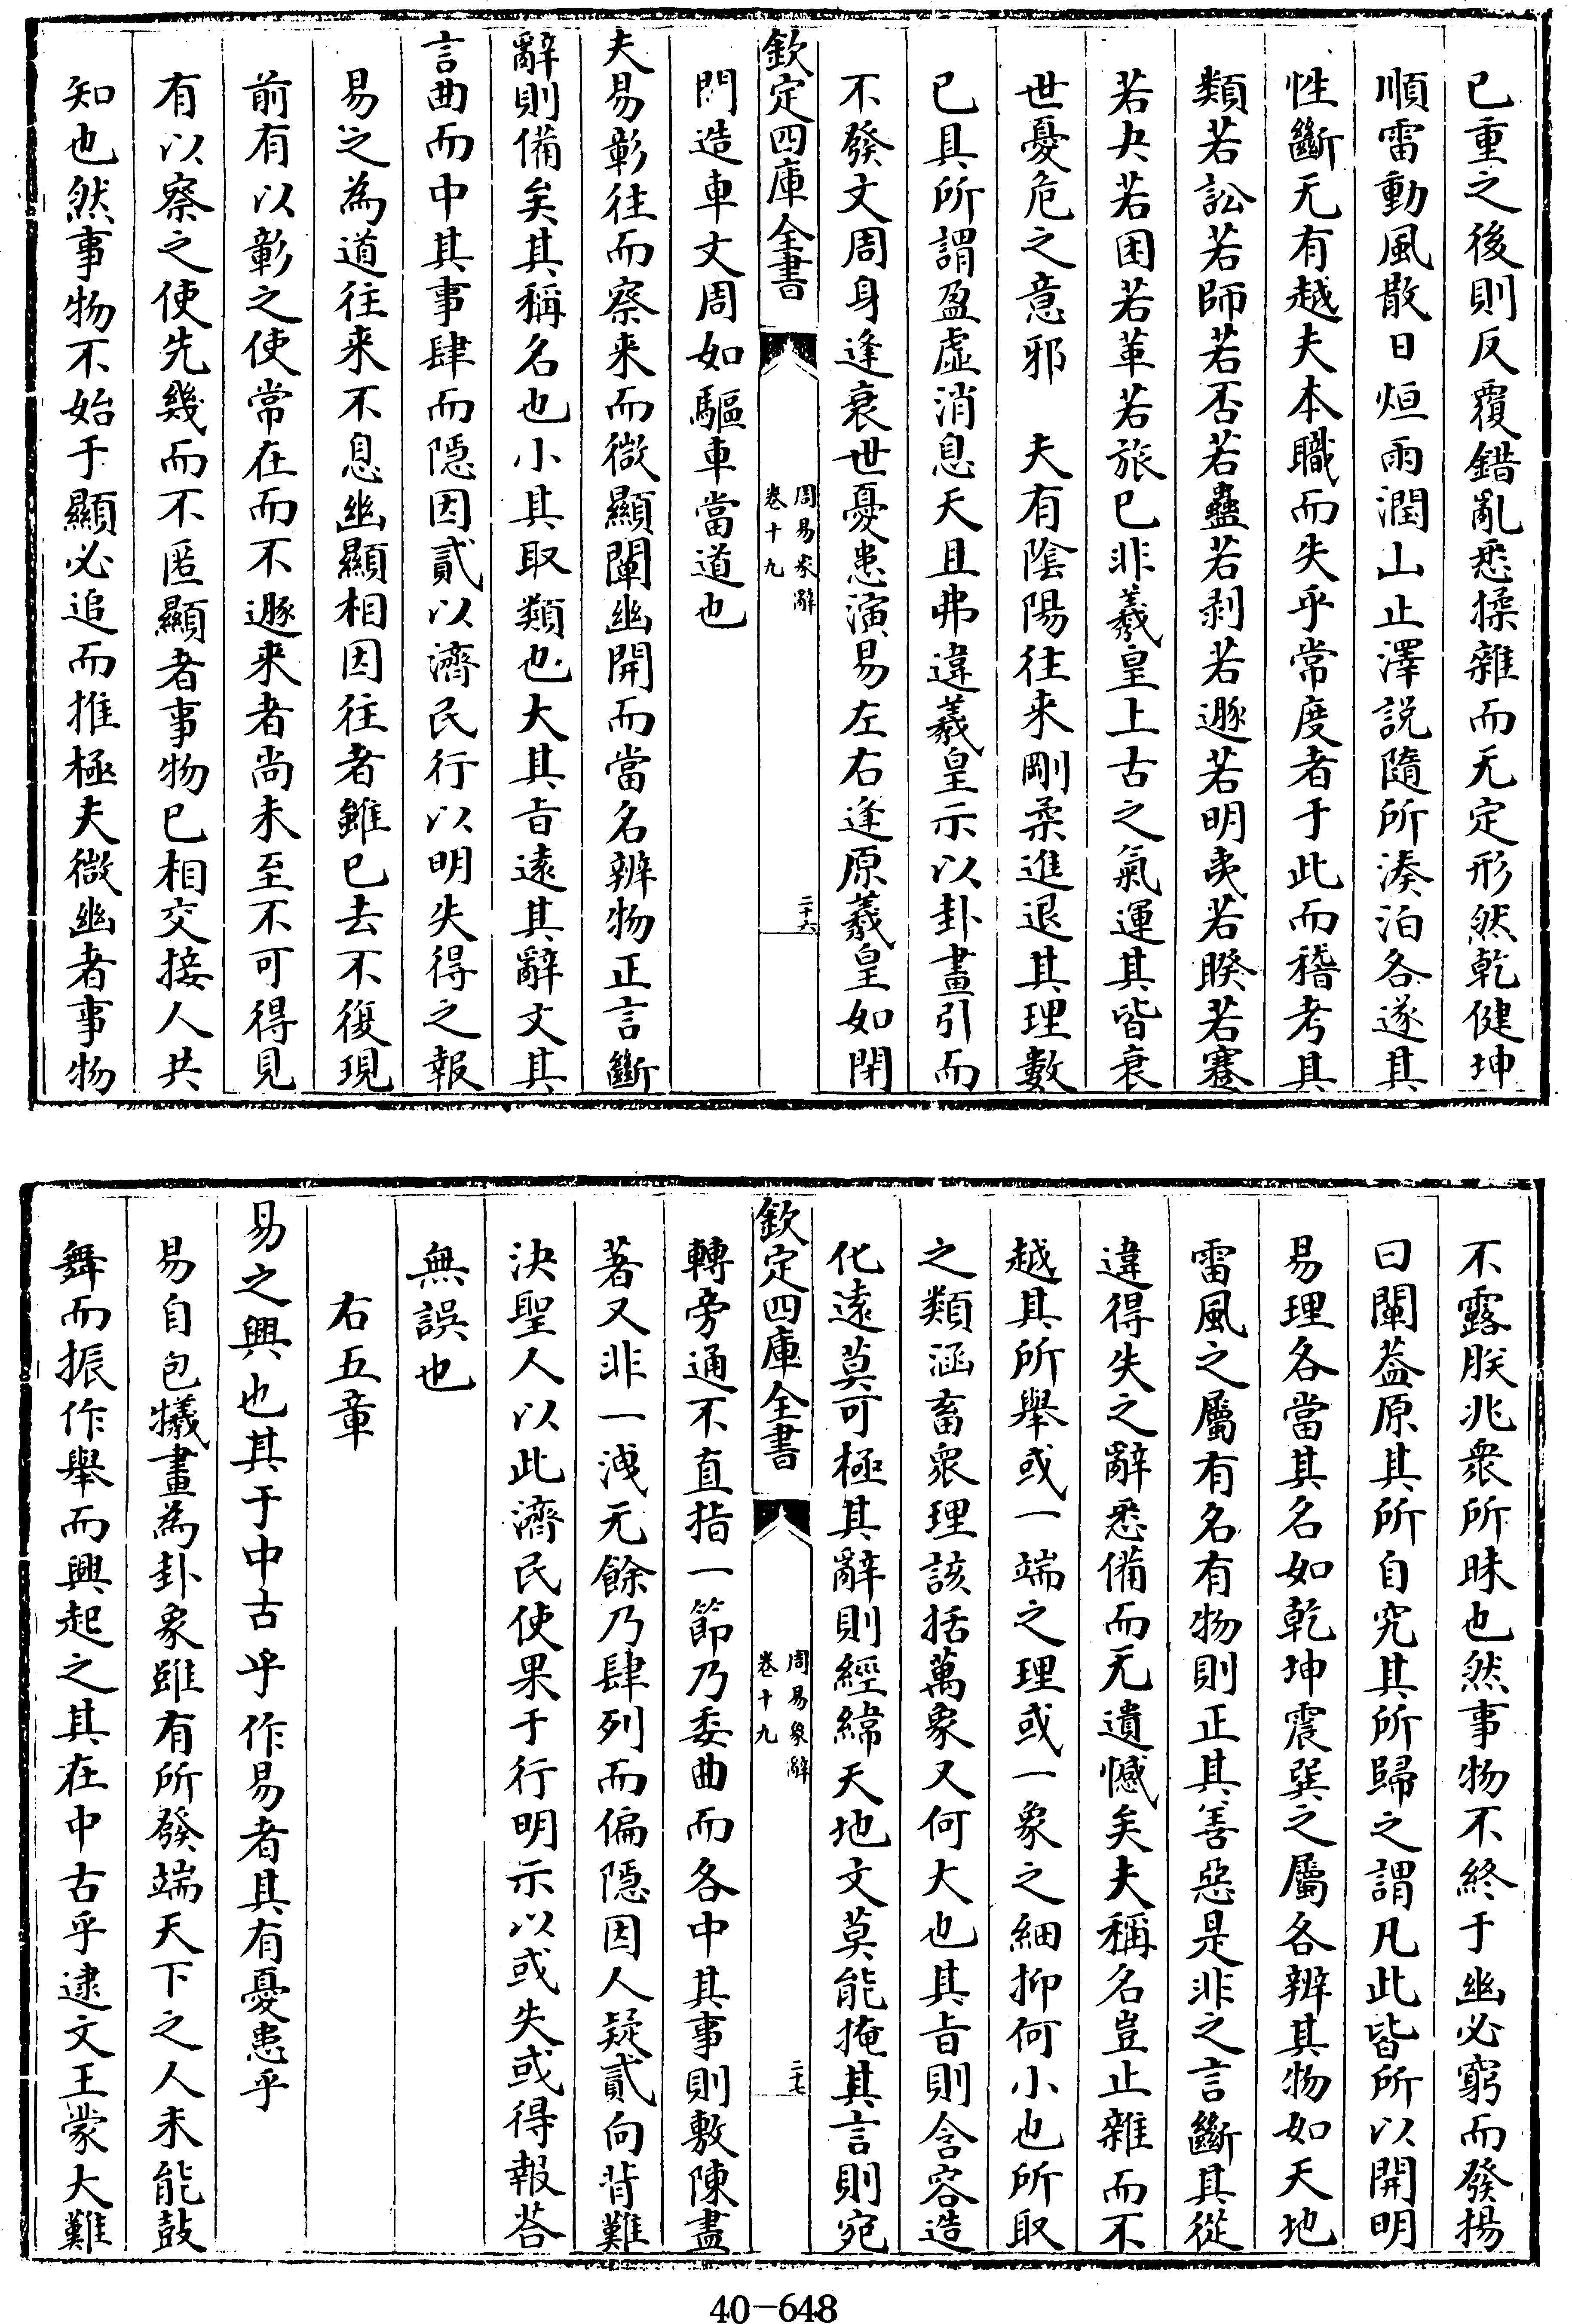 已重之後則反覆錯亂悉揉雜而无定形然乾健坤
順雷動風散日烜雨潤山止澤説隨所湊泊各遂其
性斷无有越夫本職而失乎常度者于此而稽考其
類若訟若師若否若蠱若剥若遯若明夷若睽若蹇
若夬若困若革若旅已非羲皇上古之氣運其皆衰
世憂危之意邪　夫有陰陽往来剛柔進退其理數
已具所謂盈虛消息天且弗違羲皇示以卦畫引而
不發文周身逢衰世憂患演易左右逢原羲皇如閉
欽定四庫全書　周易象辭 卷十九　二十六
門造車文周如驅車當道也
夫易彰往而察来而微顯闡幽開而當名辨物正言斷
辭則備矣其稱名也小其取類也大其㫖逺其辭文其
言曲而中其事肆而隱因貳以濟民行以明失得之報
易之為道往来不息幽顯相因往者雖已去不復現
前有以彰之使常在而不遯来者尚未至不可得見
有以察之使先幾而不匿顯者事物已相交接人共
知也然事物不始于顯必追而推極夫微幽者事物
不露朕兆衆所昧也然事物不終于幽必窮而發揚
曰闡葢原其所自究其所歸之謂凡此皆所以開明
易理各當其名如乾坤震巽之屬各辨其物如天地
雷風之屬有名有物則正其善惡是非之言斷其從
違得失之辭悉備而无遺憾矣夫稱名豈止雜而不
越其所舉或一端之理或一象之細抑何小也所取
之類涵畜衆理該括萬象又何大也其㫖則含容造
化逺莫可極其辭則經緯天地文莫能掩其言則宛
欽定四庫全書　周易象辭 卷十九　二十七
轉旁通不直指一節乃委曲而各中其事則敷陳盡
著又非一洩无餘乃肆列而偏隱因人疑貳向背難
決聖人以此濟民使果于行明示以或失或得報荅
無誤也
右五章
易之興也其于中古乎作易者其有憂患乎
易自包犧畫為卦象雖有所發端天下之人未能鼓
舞而振作舉而興起之其在中古乎逮文王蒙大難
40-648